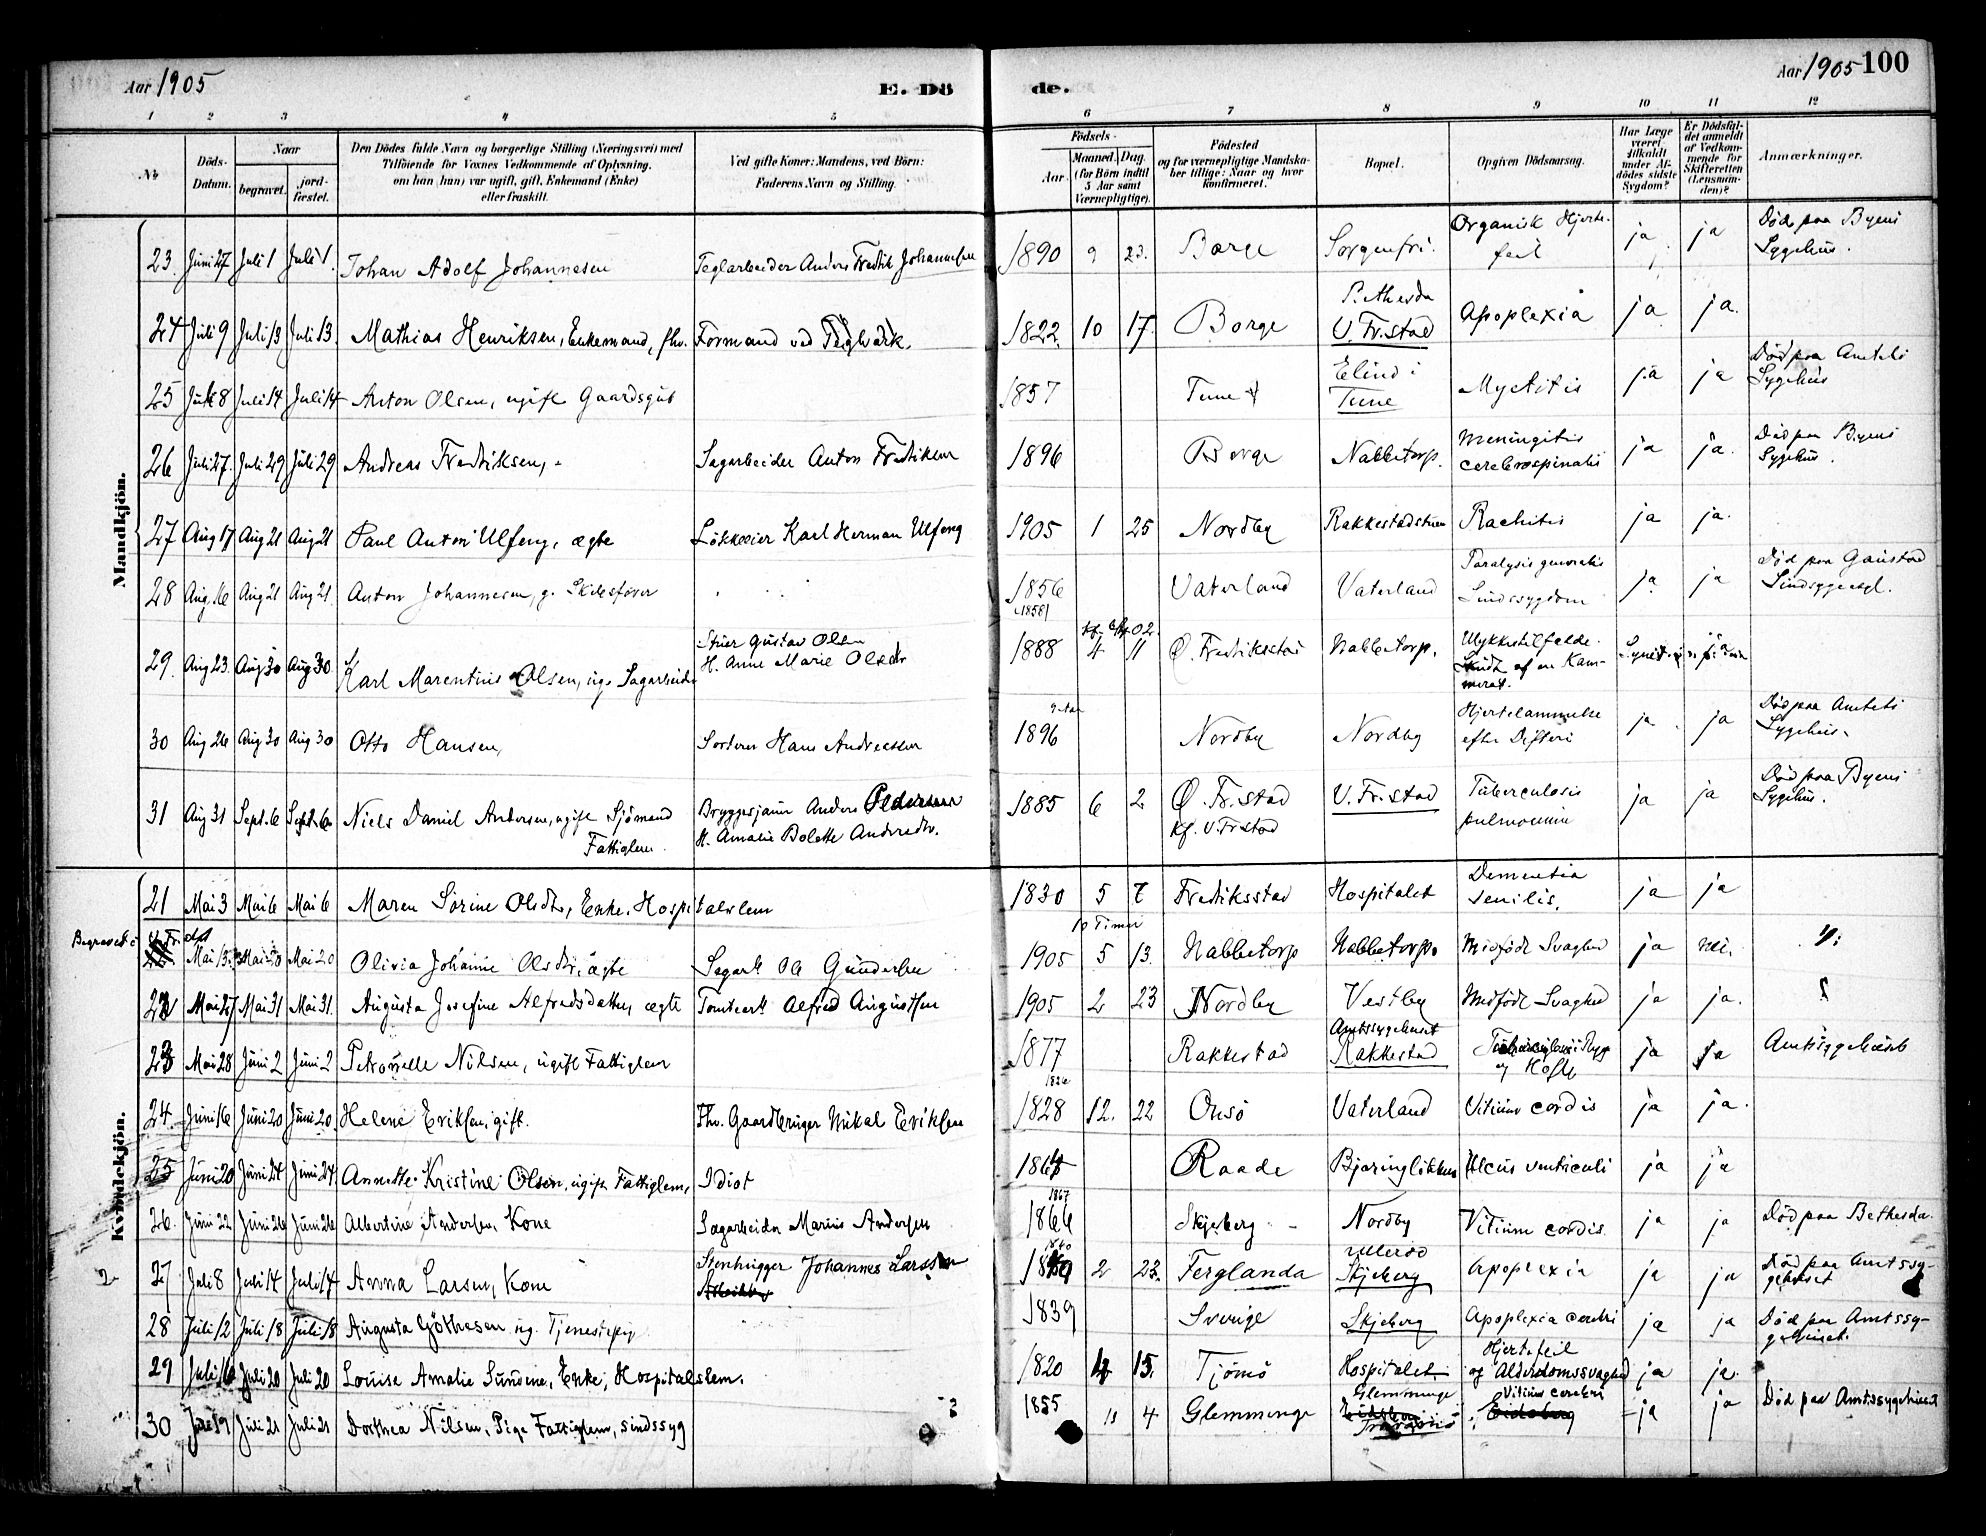 Aar 1905 E. Dö
de. Aar 1905 100
1 2 3 4 5 6 7 8 9 10 11 12
No
Döds-Datum.
Naar
begravet.
jord-fæstet.
Den Dödes fulde Navn og borgerlige Stilling (Næringsvei) med
Tilföiende for Voxnes Vedkommende af Oplysning,
om han (hun) var ugift, gift, Enkemand (Enke)
eller fraskilt.
Ved gifte Koner: Mandens, ved Börn:
Faderens Navn og Stilling.
Födsels-
Aar.
Maaned. Dag.
(for Börn indtil
5 Aar samt
Værnepligtige).
Födested
og for værnepligtige Mandska-
ber tillige: Naar og hvor
konfirmeret.
Bopæl.
Opgiven Dödsaarsag.
Har Læge
været
tilkaldt
under Af-
dödes sidste
Sygdom?
Er Dödsfal-
det anmeldt
af Vedkom-
mende for
Skifteretten
(Lensman-
den)?
Anmærkninger.
Mandkjön.
23. Juni 27 Juli 1 Juli 1. Johan Adolf Johannesen Teglarbeider Anders Fredrik Johannesen 1890 9 23. Borge Sorgenfri. Organisk Hjerte-
feil ja ja Död paa Byens
Sygehus.
24 Juli 9 Juli 13 Juli 13. Mathias Henriksen, Enkemand, fhv. Formand ved Teglværk. 1822. 10 17. Borge Bethesda
V. Fr.stad Apoplexia ja ja.
25 Juli 8 Juli 14 Juli 14 Anton Olsen, ugift Gaardsgut 1857 Tune Elind i
Tune Myetitis ja ja Död paa Amtets
Sygehus
26 Juli 27. Juli 29 Juli 29 Andreas Fredriksen, Sagarbeider Anton Fredriksen 1896 Borge Nabbetorp. Meningitis
cerebrospinalis ja ja. Död paa Byens
Sygehus.
27 Aug 17 Aug 21 Aug 21 Paul Anton Ulfeng, ægte Lökkeeier Karl Herman Ulfeng 1905 1 25 Nordby Rakkestadstuen Rachitis ja ja.
28 Aug. 16 Aug 21 Aug 21. Anton Johannesen, g. Skibsförer 1856
(1858) Vaterland Vaterland Paralysis generalis
Sindssygdom ja ja Död paa Gaustad
Sindsygeasyl.
29. Aug 23. Aug 30 Aug 30 Karl Marentius Olsen, ug. Sagarbeider Stuer Gustav Olsen
H. Anne Marie Olsdtr 1888 4 11 Ö. Fredriksstad Nabbetorp. Ulykkestilfælde.
Skudt af en Kam-
merat.
30 Aug 26 Aug 30 Aug 30 Otto Hansen, Sorterer Hans Andreassen 1896 Nordby Nordby Hjertelammelse
efter Difteri ja ja Död paa Amtets
Sygehus.
31 Aug 31 Sept. 6 Sept. 6 Niels Daniel Andersen, ugift Sjömand
Fattiglem. Bryggesjauer Anders Pedersen
H. Amalie Bolette Andersdtr. 1885 6 2 Ö. Fr.stad
Kf. V. Fr.stad V. Fr.stad Tuberculosis
pulmonum ja ja Död paa Byens
Sygehus.
Kvindekjön.
21 Mai 3 Mai 6 Mai 6 Maren Sörine Olsdtr, Enke. Hospitalslem 1830 5 7 Fredriksstad Hospitalet Dementia
senilis. ja ja
Begravet i V. Fr.stad Mai 13. Mai 20 Mai 20 Olivia Johanne Olsdtr, ægte Sagarb. Ole Gundersen 10 Timer
1905 5 13. Nabbetorp Nabbetorp. Medfödt Svaghed ja nei.
22 Mai 27 Mai 31 Mai 31. Augusta Josefine Alfredsdatter, ægte Tomtearb. Alfred Augustsen 1905 2 23 Nordby Vestby Medfödt Svaghed ja ja.
23 Mai 28 Juni 2 Juni 2 Petronelle Nilsen, ugift Fattiglem 1877 Rakkestad Amtssygehuset
Rakkestad Tuberculosis i Ryg
og Hofte ja ja Amtssygehuset
24. Juni 16 Juni 20 Juni 20. Helene Eriksen, gift. Fhv. Gaardbruger Mikal Eriksen 1828 12. 22 Onsö Vaterland Vitium cordis ja ja.
25 Juni 20 Juni 24 Juni 24. Annette Kristine Olsen, ugift Fattiglem, Idiot 1864 Raade Bjaringlökken Ulcus ventriculi ja ja
26. Juni 22 Juni 26 Juni 26 Albertine Andersen, Kone Sagarbeider Marius Andersen 1867
1866 Skjeberg Nordby Vitium cordis ja ja Död paa Bethesda.
27 Juli 8 Juli 14 Juli 14 Anna Larsen, Kone Stenhugger Johannes Larssen 2 23. Ferglanda Ullerød
Skjeberg Apoplexia ja ja Död paa Amtssy-
gehuset
28 Juli 12 Juli 18 Juli 18 Augusta Göthesen ug. Tjenestepig 1839 Sverige Skjeberg Apoplexia cerebri ja ja Död paa Amtssy-
gehuset.
29 Juli 16 Juli 20 Juli 20 Louise Amalie Sundine, Enke, Hospitalslem. 1820 4 15. Tjömö Hospitalet Hjertefeil
og Alderdomssvaghed ja ja
30 Juli 19 Juli 21 Juli 21 Dorthea Nilsen, Pige Fattiglem, sindssyg 1855 11 4 Glemminge Glemminge Vitium cerebri ja ja Död paa Amtssygehuset